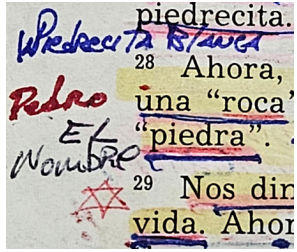 piedrecita.
Piedrecita Blanca
28 Ahora,
Pedro
una “roca”
EL
“piedra”.
Nombre
29 Nos din
vida. Ahor